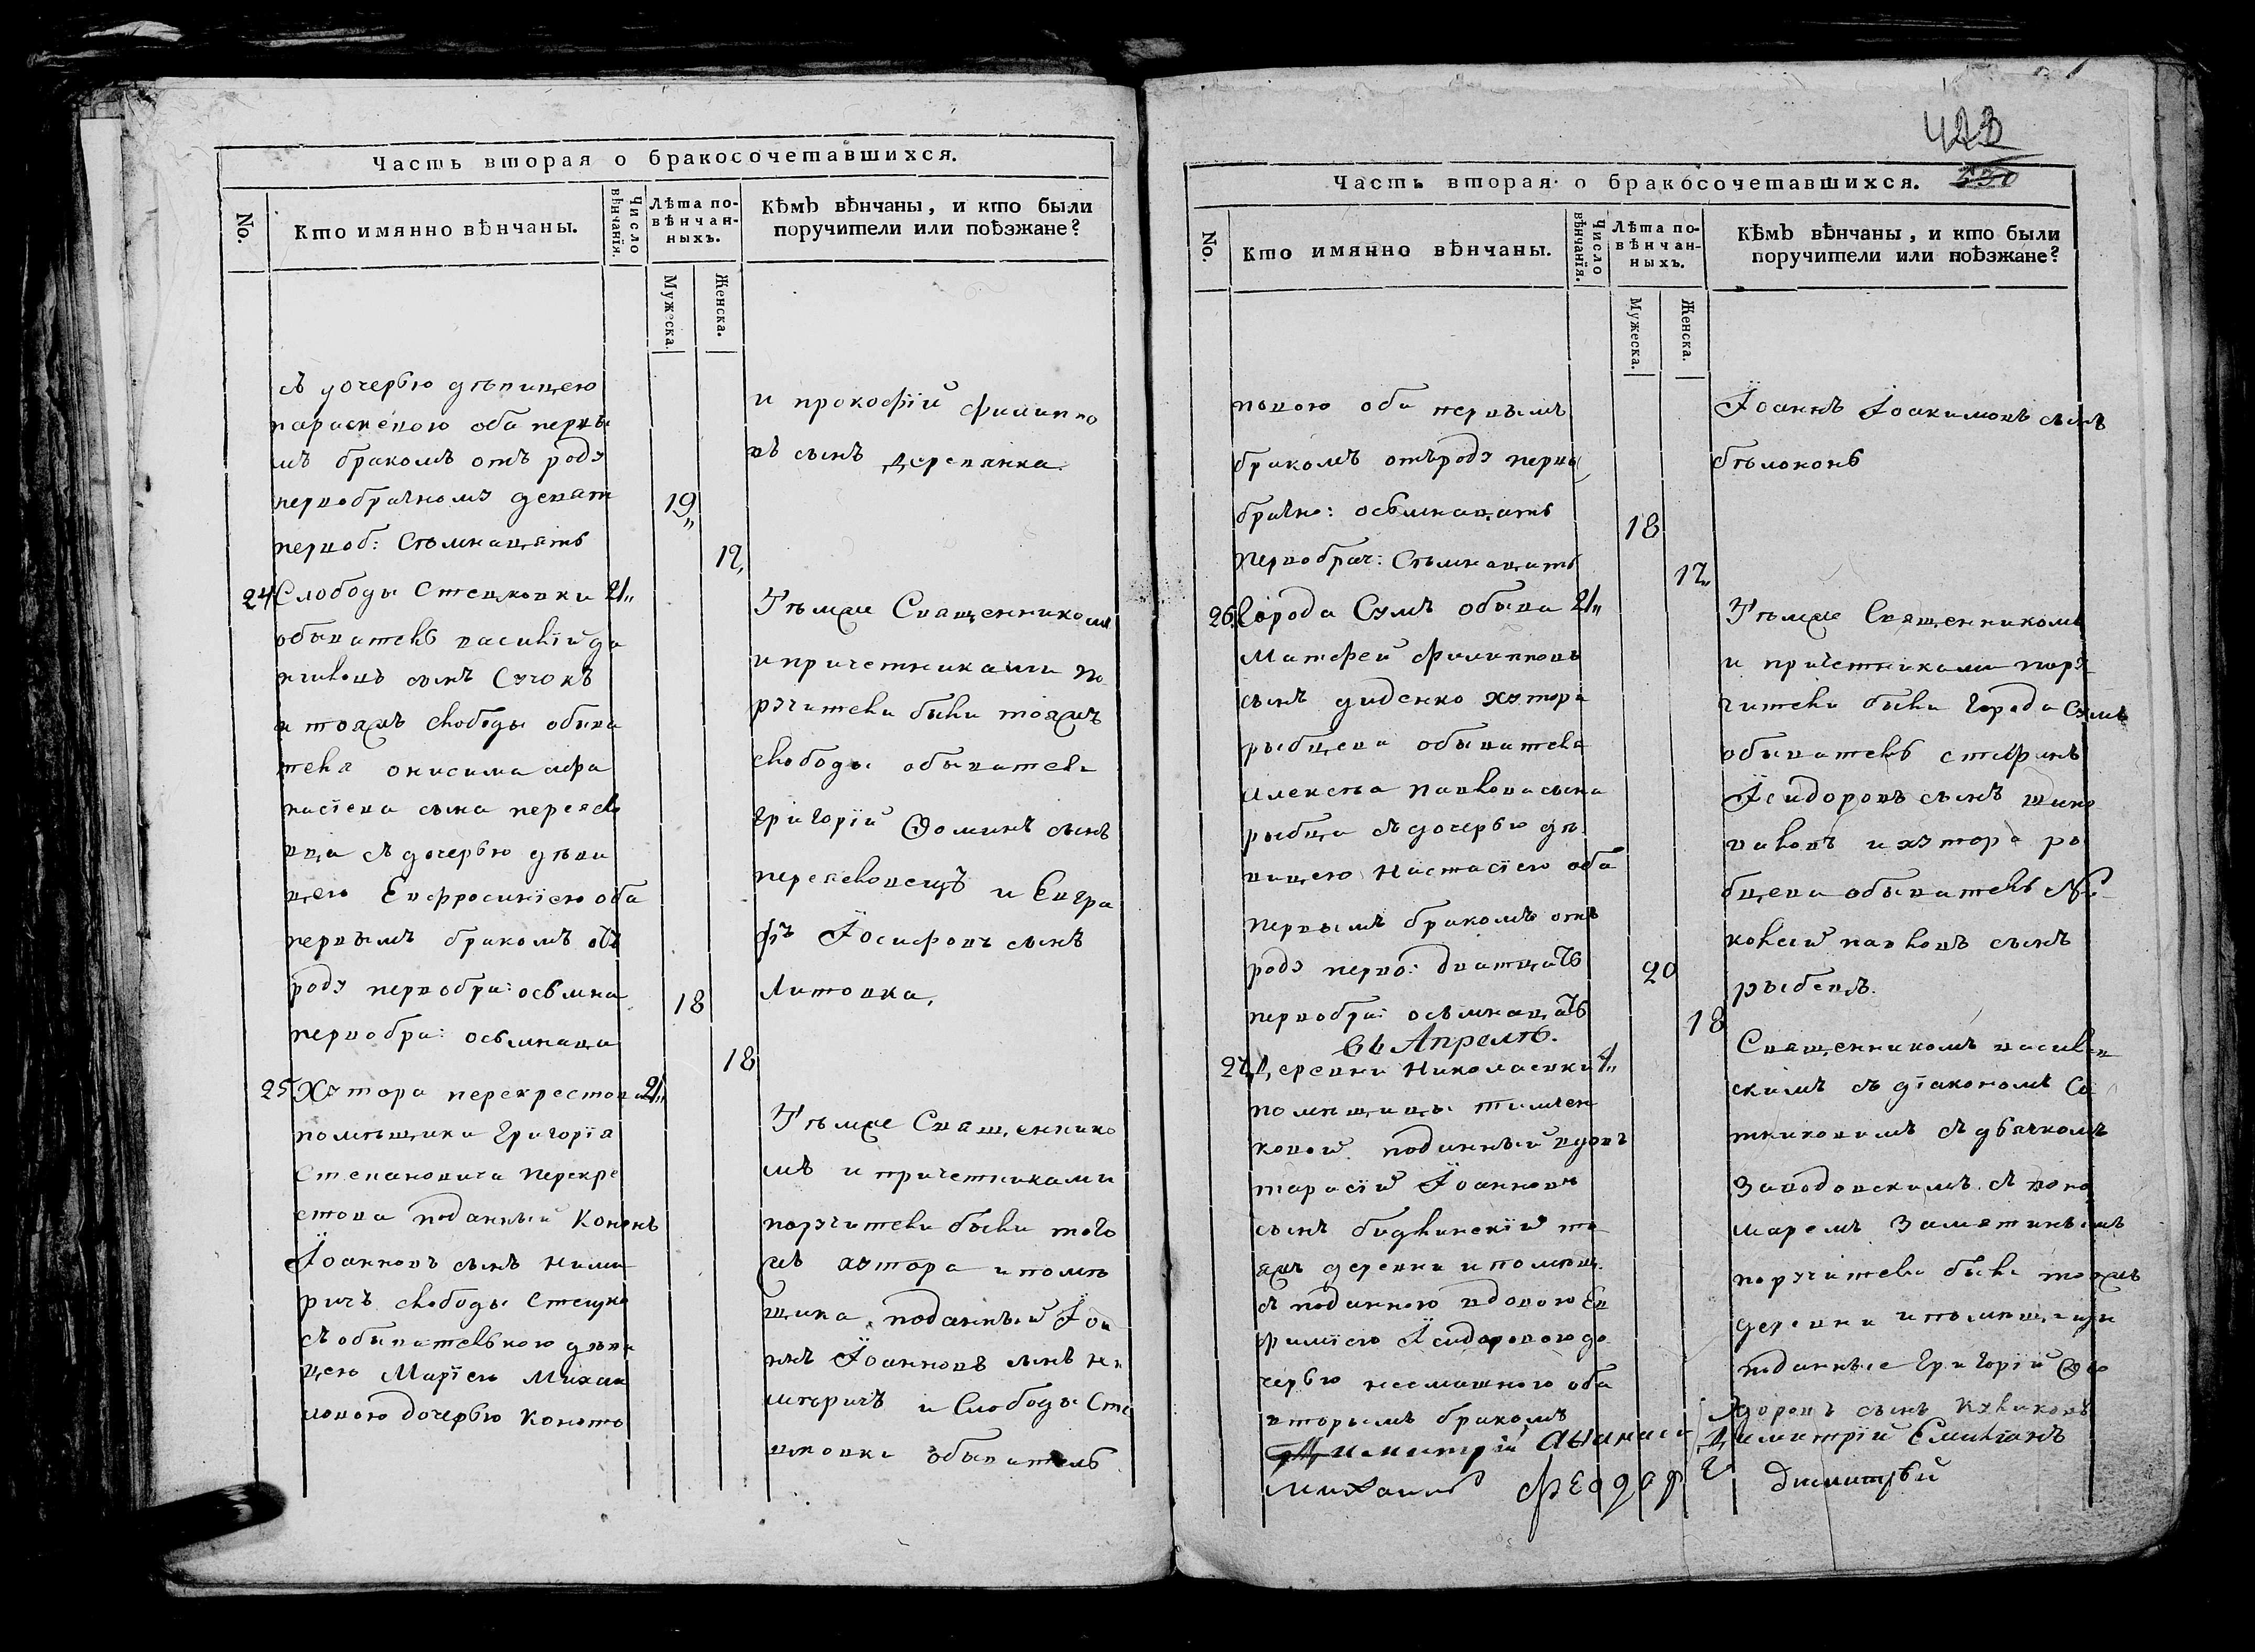 Часть вторая о бракосочетавшихся.
No.
Кто имянно вѣнчаны.
Число вѣнчанїя.
Лѣта по-
вѣнчан-
ныхъ.
Мужеска.
Женска.
Кѣмъ вѣнчаны, и кто были
поручители или поѣзжане?
съ дочерью дѣвицею
параскевою оба первы
мъ бракомъ отъ роду
первобрачному девят
19„
первоб: Сѣмнацять
17„
и прокофїй филиппо
въ сынъ деревянка.
24 Слободы Стецковки 21„
обыватель василїй да
ниловъ сынъ Сучокъ
и тояжъ слободы обыва
теля онисима афа
насїева сына переясло
вца съ дочерью дѣви
цею Евфросинїею оба
первымъ бракомъ отъ
роду первобра: осьмна
18
первобра: осьмнаца
18
Тѣмже Священникомъ
и причетниками по
ручители были тояжъ
слободы обыватели
григорїй Ѳоминъ сынъ
переясловецъ и Евгра
фъ Іосифовъ сынъ
Литовка.
25 Хутора перекрестова 21„
помѣщика Григорїя
Степановича Перекре
стова подданный Кононъ
Іоанновъ сынъ ними
ричъ слободы Стецко
съ обывательскою дѣви
цею Марїею Михаи
ловою дочерью Коното
Тѣмже Священнико
мъ и причетниками
поручители были того
жъ хутора и помѣ
щика подданный Іоа
ннъ Іоанновъ сынъ не
мѣричъ и Слободы Сте
цковки обыватель
423
530
Часть вторая о бракосочетавшихся.
No.
Кто имянно вѣнчаны.
Число вѣнчанїя.
Лѣта по-
вѣнчан-
ныхъ.
Мужеска.
Женска.
Кѣмъ вѣнчаны, и кто были
поручители или поѣзжане?
повою оба первымъ
бракомъ отъ роду перво
брачно: осьмнацать
18
первобрач: Сѣмнацать
17„
Іоаннъ Іоакимовъ сынъ
бѣлоконь
26. Города Сумъ обыва 21„
Матфей филипповъ
сынъ диденко хутора
рыбцева обывателя
алексѣа павлова сына
рыбца съ дочерью дѣ
вицею Настасїею оба
первымъ бракомъ отъ
роду перво: дватцать
20
первобра: осьмнацать
18
Тѣмже Священникомъ
и причетниками пору
чители были города Сумъ
обыватель стефанъ
Ісидоровъ сынъ
и хутора ры
бцева обыватель Ни
колай павловъ сынъ
рыбецъ.
въ Апрелѣ.
27 Деревни Николаевки 4„
помѣщицы тимчен
ковой подданный вдовъ
тарасїй Іоанновъ
сынъ будкинскїй то
яжъ деревни и помѣщ.
съ подданною вдовою Ев
фимїею Ісидоровою до
черью несмашною оба
вторымъ бракомъ
Священникомъ васил
скимъ съ дїакономъ Са
тниковимъ съ дьячкомъ
Заводовскимъ съ поно
маремъ Заметинымъ
поручители были тояжъ
деревни и помѣщицы
подданные григорїй Ѳео
доровъ сынъ куликовъ
Димитрїй Емилїанъ
Димитрїй
Михаилъ федор
Димитрїй